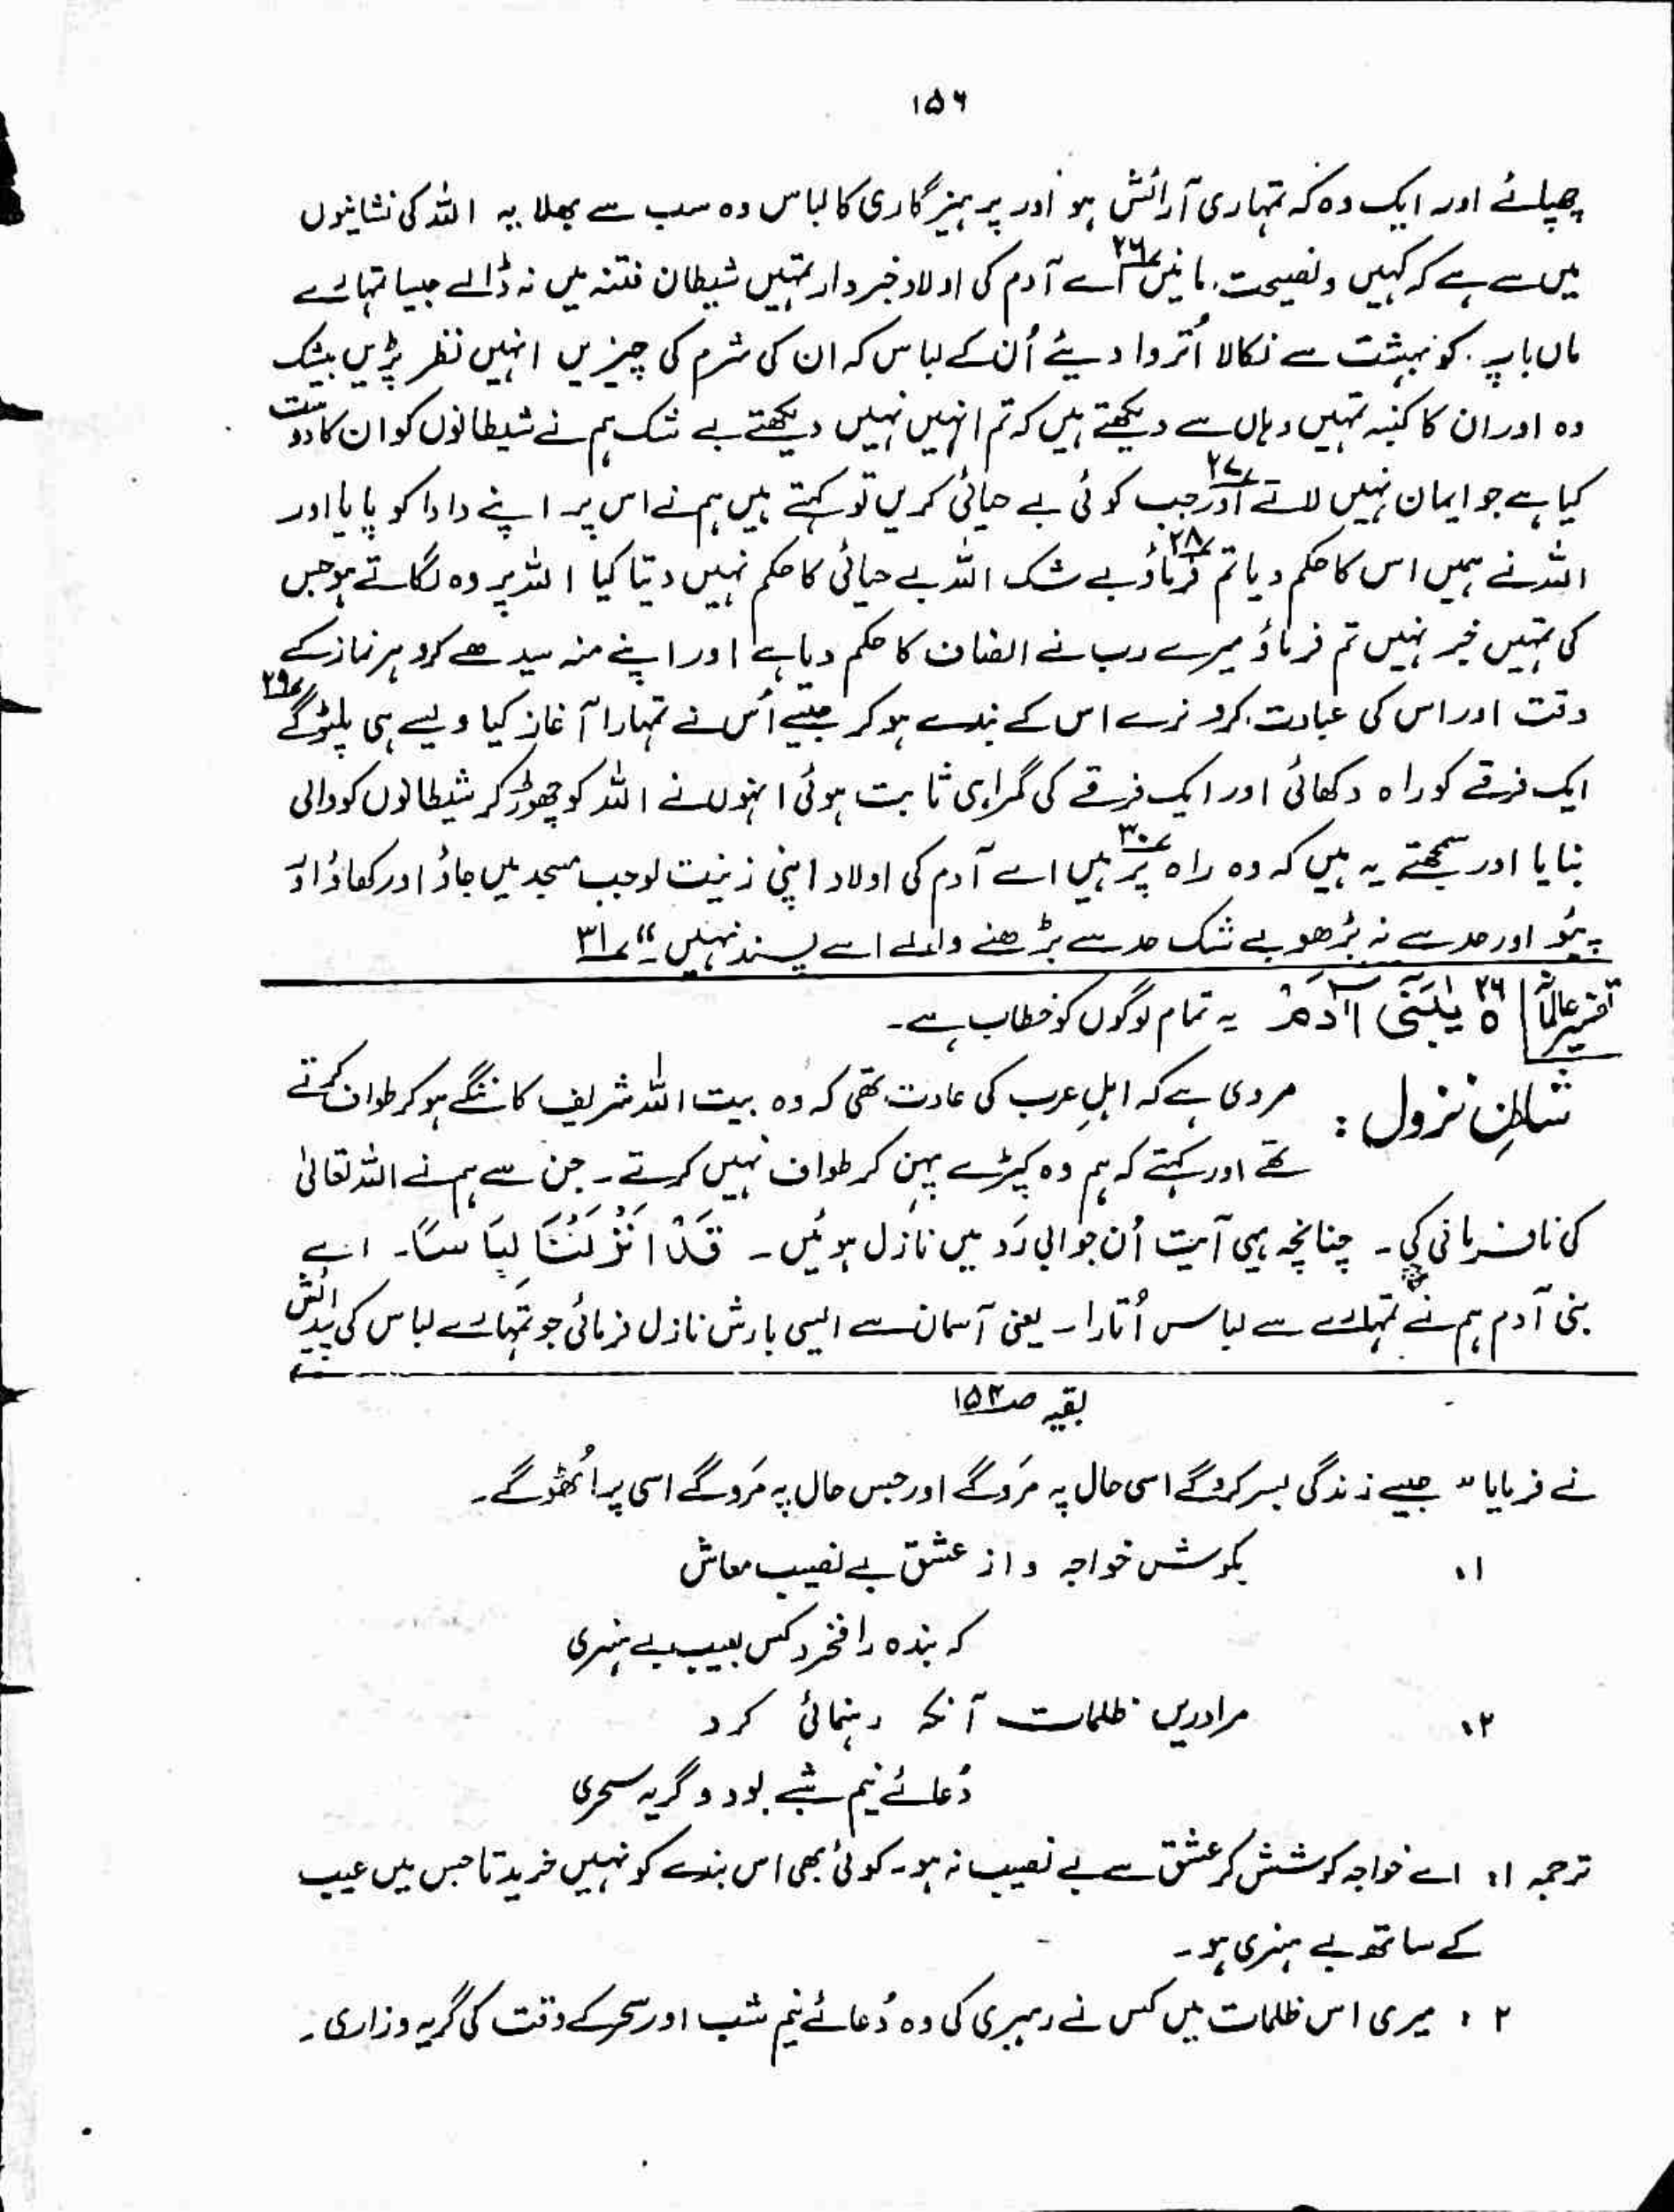 ۱۵۶
چھپائے اور ایک وہ کہ تمہاری آرائش ہو اور پرہیزگاری کا لباس وہ سب سے بھلا یہ اللہ کی نشانیوں
میں سے ہے کہ کہیں وہ نصیحت مانیں ۲۶ اے آدم کی اولاد خبردار تمہیں شیطان فتنہ میں نہ ڈالے جیسا تمہارے
ماں باپ کو بہشت سے نکالا اُتروا دیئے اُن کے لباس کہ ان کی شرم کی چیزیں انہیں نظر پڑیں بیشک
وہ اور ان کا کنبہ تمہیں وہاں سے دیکھتے ہیں کہ تم انہیں نہیں دیکھتے بے شک ہم نے شیطانوں کو ان کا دوست
کیا ہے جو ایمان نہیں لاتے ۲۷ اور جب کوئی بے حیائی کریں تو کہتے ہیں ہم نے اس پر اپنے دادا کو پایا اور
اللہ نے ہمیں اس کا حکم دیا تم فرماؤ ۲۸ بے شک اللہ بے حیائی کا حکم نہیں دیتا کیا اللہ پر وہ لگاتے ہو جس
کی تمہیں خبر نہیں تم فرماؤ میرے رب نے انصاف کا حکم دیا ہے اور اپنے منہ سیدھے کرو ہر نماز کے
وقت اور اس کی عبادت کرو نرے اس کے بندے ہو کر جیسے اُس نے تمہارا آغاز کیا ویسے ہی پلٹو گے ۲۹
ایک فرقے کو راہ دکھائی اور ایک فرقے کی گمراہی ثابت ہوئی انہوں نے اللہ کو چھوڑ کر شیطانوں کو والی
بنایا اور سمجھتے یہ ہیں کہ وہ راہ پر ہیں ۳۰ اے آدم کی اولاد اپنی زینت لو جب مسجد میں جاؤ اور کھاؤ اور
پیئو اور حد سے نہ بڑھو بے شک حد سے بڑھنے والے اسے پسند نہیں ۔“ ۳۱
تفسیر عالمانہ ۲۶ یٰبَنِیْ اٰدَمَ یہ تمام لوگوں کو خطاب ہے۔
شانِ نزول : مروی ہے کہ اہلِ عرب کی عادت تھی کہ وہ بیت اللہ شریف کا ننگے ہو کر طواف کرتے
تھے اور کہتے کہ ہم وہ کپڑے پہن کر طواف نہیں کرتے۔ جن سے ہم نے اللہ تعالیٰ
کی نافرمانی کی۔ چنانچہ یہی آیت اُن جوابی رَد میں نازل ہوئیں۔ قَدْ اَنْزَلْنَا لِبَاسًا۔ اے
بنی آدم ہم نے تمہارے سے لباس اُتارا۔ یعنی آسمان سے ایسی بارش نازل فرمائی جو تمہارے لباس کی پیدائش
بقیہ صـ ۱۵۲
نے فرمایا ” جیسے زندگی بسر کرو گے اسی حال پہ مَرو گے اور جس حال پہ مَرو گے اسی پر اُٹھو گے۔
۱۔ بکوش خواجہ و از عشق بے نصیب معاش
کہ بندہ را نخرد کس بعیب بے ہنری
۲۔ مرا دریں ظلمات آنکہ رہنمائی کرد
دُعائے نیم شبے بود و گریہ سحری
ترجمہ ۱: اے خواجہ کوشش کر عشق سے بے نصیب نہ ہو۔ کوئی بھی اس بندے کو نہیں خریدتا جس میں عیب
کے ساتھ بے ہنری ہو۔
۲ : میری اس ظلمات میں کس نے رہبری کی وہ دُعائے نیم شب اور سحر کے وقت کی گریہ و زاری۔